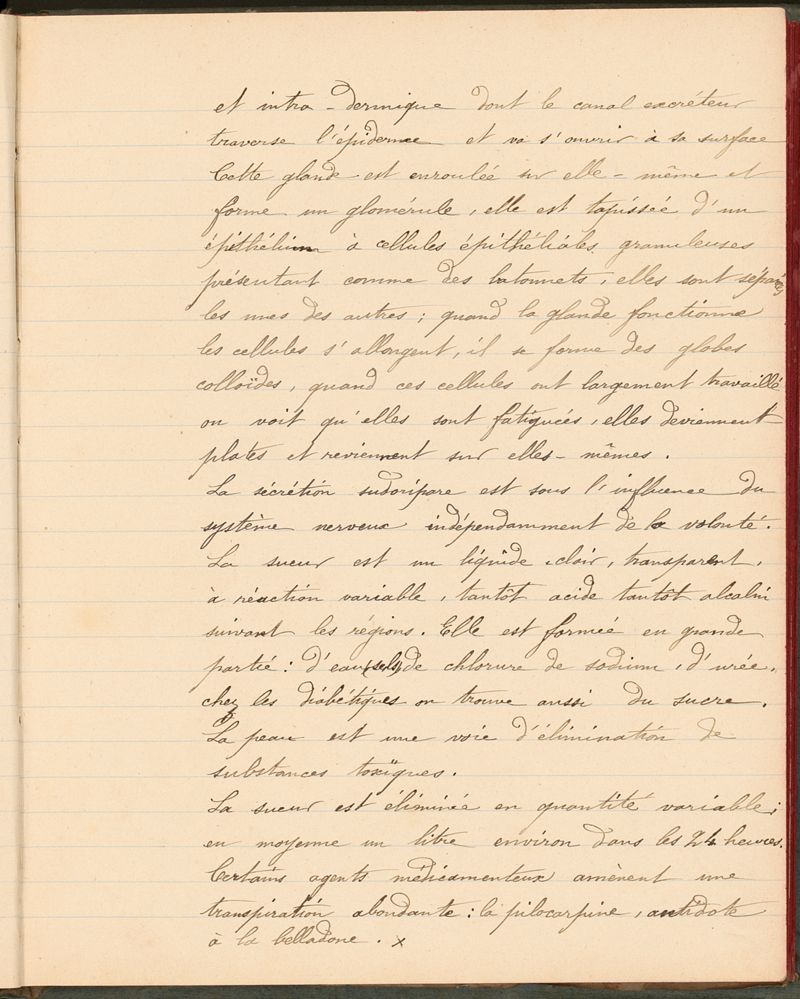 et intra-dermique dont le canal excréteur
traverse l'épiderme et va s'ouvrir à sa surface
Cette glande est enroulée sur elle-même et
forme un glomérule, elle est tapissée d'un
épithélium à cellules épithéliales granuleuses
présentant comme des batonnets, elles sont séparées
les unes des autres ; quand la glande fonctionne
les cellules s'allongent, il se forme des globes
colloïdes, quand ces cellules ont largement travaillé
on voit qu'elles sont fatiguées, elles deviennent
plates et reviennent sur elles-mêmes.
La sécrétion sudoripare est sous l'influence du
système nerveux indépendamment de la volonté.
La sueur est un liquide clair, transparent,
à réaction variable, tantôt acide tantôt alcalin
suivant les régions. Elle est formée en grande
partie : d'eau (sels) de chlorure de sodium, d'urée,
chez les diabétiques on trouve aussi du sucre.
La peau est une voie d'élimination de
substances toxiques.
La sueur est éliminée en quantité variable ;
en moyenne un litre environ dans les 24 heures.
Certains agents médicamenteux amènent une
transpiration abondante : la pilocarpine, antidote
à la belladone. x